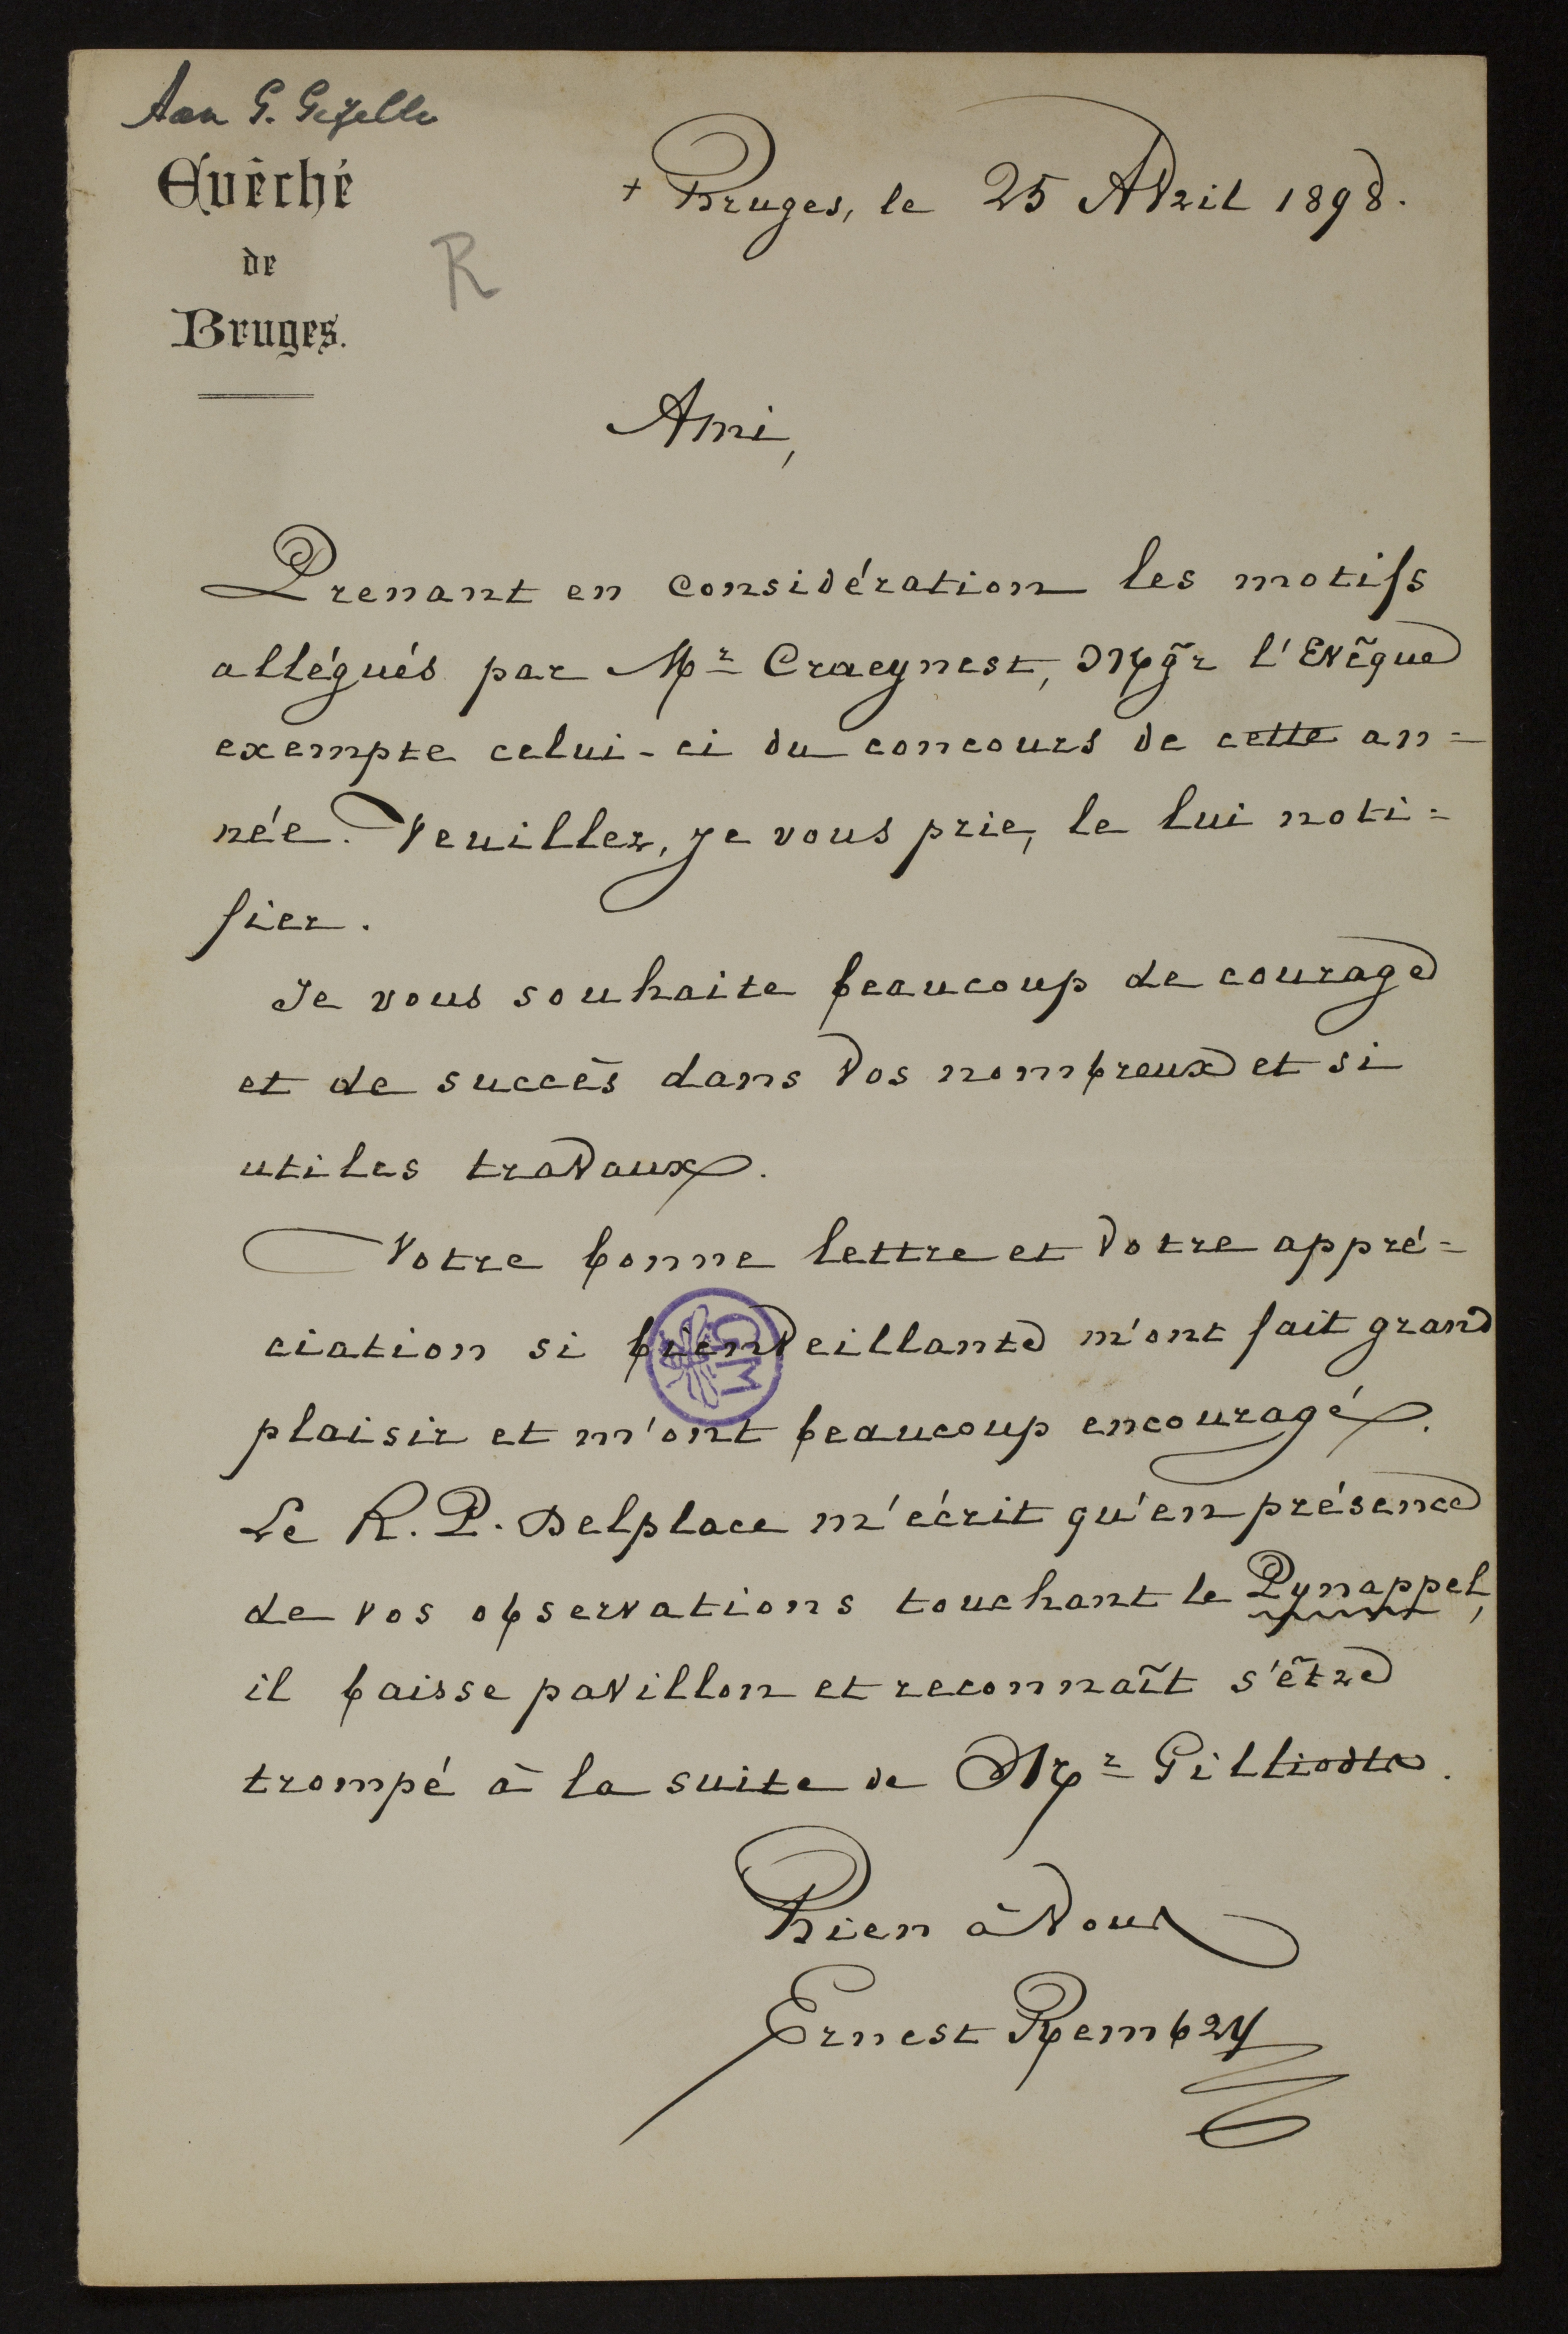 Aan G. Gezelle
Evêché
de
Bruges.
R
+ Bruges, le 25 Avril 1898.
Ami,
Prenant en considération les motifs
allégués par Mr Craeynest, Mgr l'Evêque
exempte celui-ci du concours de cette an=
née. Veuillez, je vous prie, le lui noti=
fier.
Je vous souhaite beaucoup de courage
et de succès dans vos nombreux et si
utiles travaux.
Votre bonne lettre et votre appré=
ciation si bienveillante m'ont fait grand
plaisir et m'ont beaucoup encouragé.
Le R. P. Delplace m'écrit qu'en présence
de vos observations touchant le Pynappel,
il baisse pavillon et reconnaît s'être
trompé à la suite de Mr Gilliodts.
Bien à vous
Ernest Rembry
GM